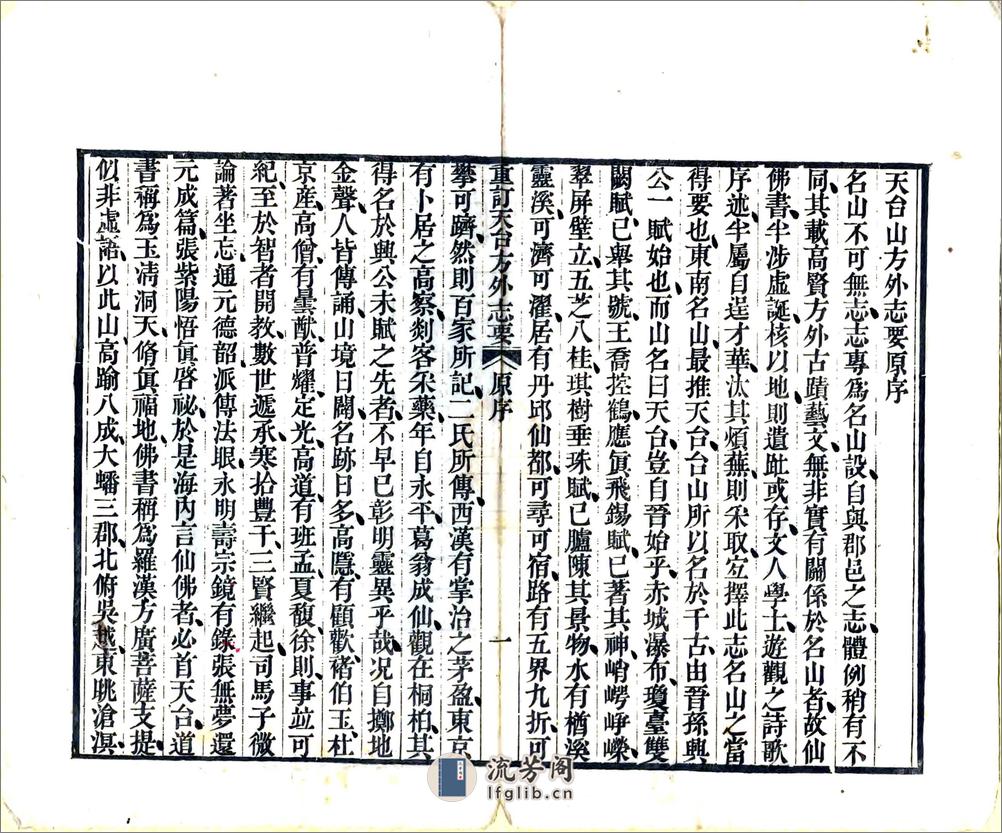 天台山方外志要原序
名山不可無志志專爲名山設自與郡邑之志體例稍有不
同其載高賢方外古蹟藝文無非實有關係於名山者故仙
佛書半涉虛誕核以地則遺趾或存文人學士遊觀之詩歌
序述半屬自逞才華汰其煩蕪則采取宐擇此志名山之當
得要也東南名山最推天台台山所以名於千古由晉孫興
公一賦始也而山名曰天台豈自晉始乎赤城瀑布瓊臺雙
闕賦已舉其號王喬控鶴應眞飛錫賦已著其神峭崿崢嶸
翠屏壁立五芝八桂琪樹垂珠賦已臚陳其景物水有楢溪
靈溪可濟可濯居有丹邱仙都可尋可宿路有五界九折可
重訂天台方外志要 原序 一
攀可躋然則百家所記二氏所傳西漢有掌治之茅盈東京
有卜居之高察剡客采藥年自永平葛翁成仙觀在桐柏其
得名於興公未賦之先者不早已彰明靈異乎哉况自擲地
金聲人皆傳誦山境日闢名跡日多高隱有顧歡褚伯玉杜
京產高僧有曇猷普耀定光高道有班孟夏馥徐則事竝可
紀至於智者開教數世遞承寒拾豐干三賢繼起司馬子微
論著坐忘通元德韶派傳法眼永明壽宗鏡有錄張無夢還
元成篇張紫陽悟眞啓祕於是海內言仙佛者必首天台道
書稱爲玉淸洞天脩眞福地佛書稱爲羅漢方廣菩薩支提
似非虛語以此山高踰八成大蟠三郡北俯吳越東眺滄溟
流芳阁
lfglib.cn